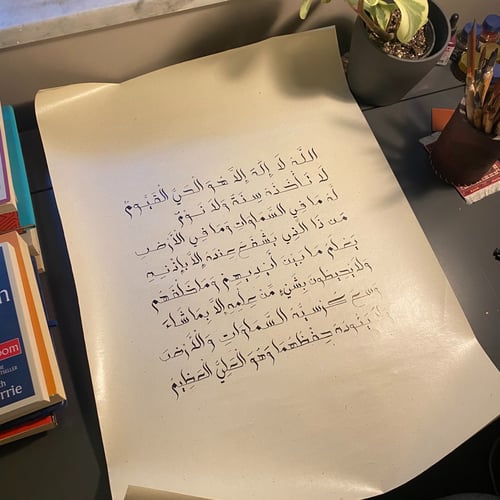 اللَّهُ لَا إِلَهَ إِلَّا هُوَ الْحَيُّ الْقَيُّومُ
لَا تَأْخُذُهُ سِنَةٌ وَلَا نَوْمٌ
لَهُ مَا فِي السَّمَاوَاتِ وَمَا فِي الْأَرْضِ
مَن ذَا الَّذِي يَشْفَعُ عِندَهُ إِلَّا بِإِذْنِهِ
يَعْلَمُ مَا بَيْنَ أَيْدِيهِمْ وَمَا خَلْفَهُمْ
وَلَا يُحِيطُونَ بِشَيْءٍ مِّنْ عِلْمِهِ إِلَّا بِمَا شَاءَ
وَسِعَ كُرْسِيُّهُ السَّمَاوَاتِ وَالْأَرْضَ
يَئُودُهُ حِفْظُهُمَا وَهُوَ الْعَلِيُّ الْعَظِيمُ